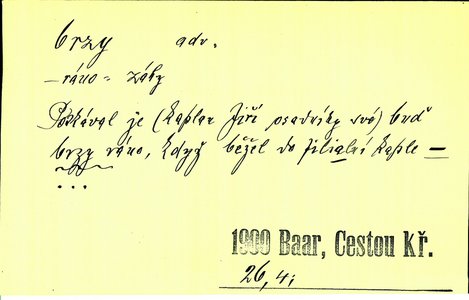 brzy adv.
— ráno = záhy
Potkával je (kaplan Jiří osadníky své) buď
brzy ráno, když běžel do filialní kaple —
...
1900 Baar, Cestou Kř.
26, 4;